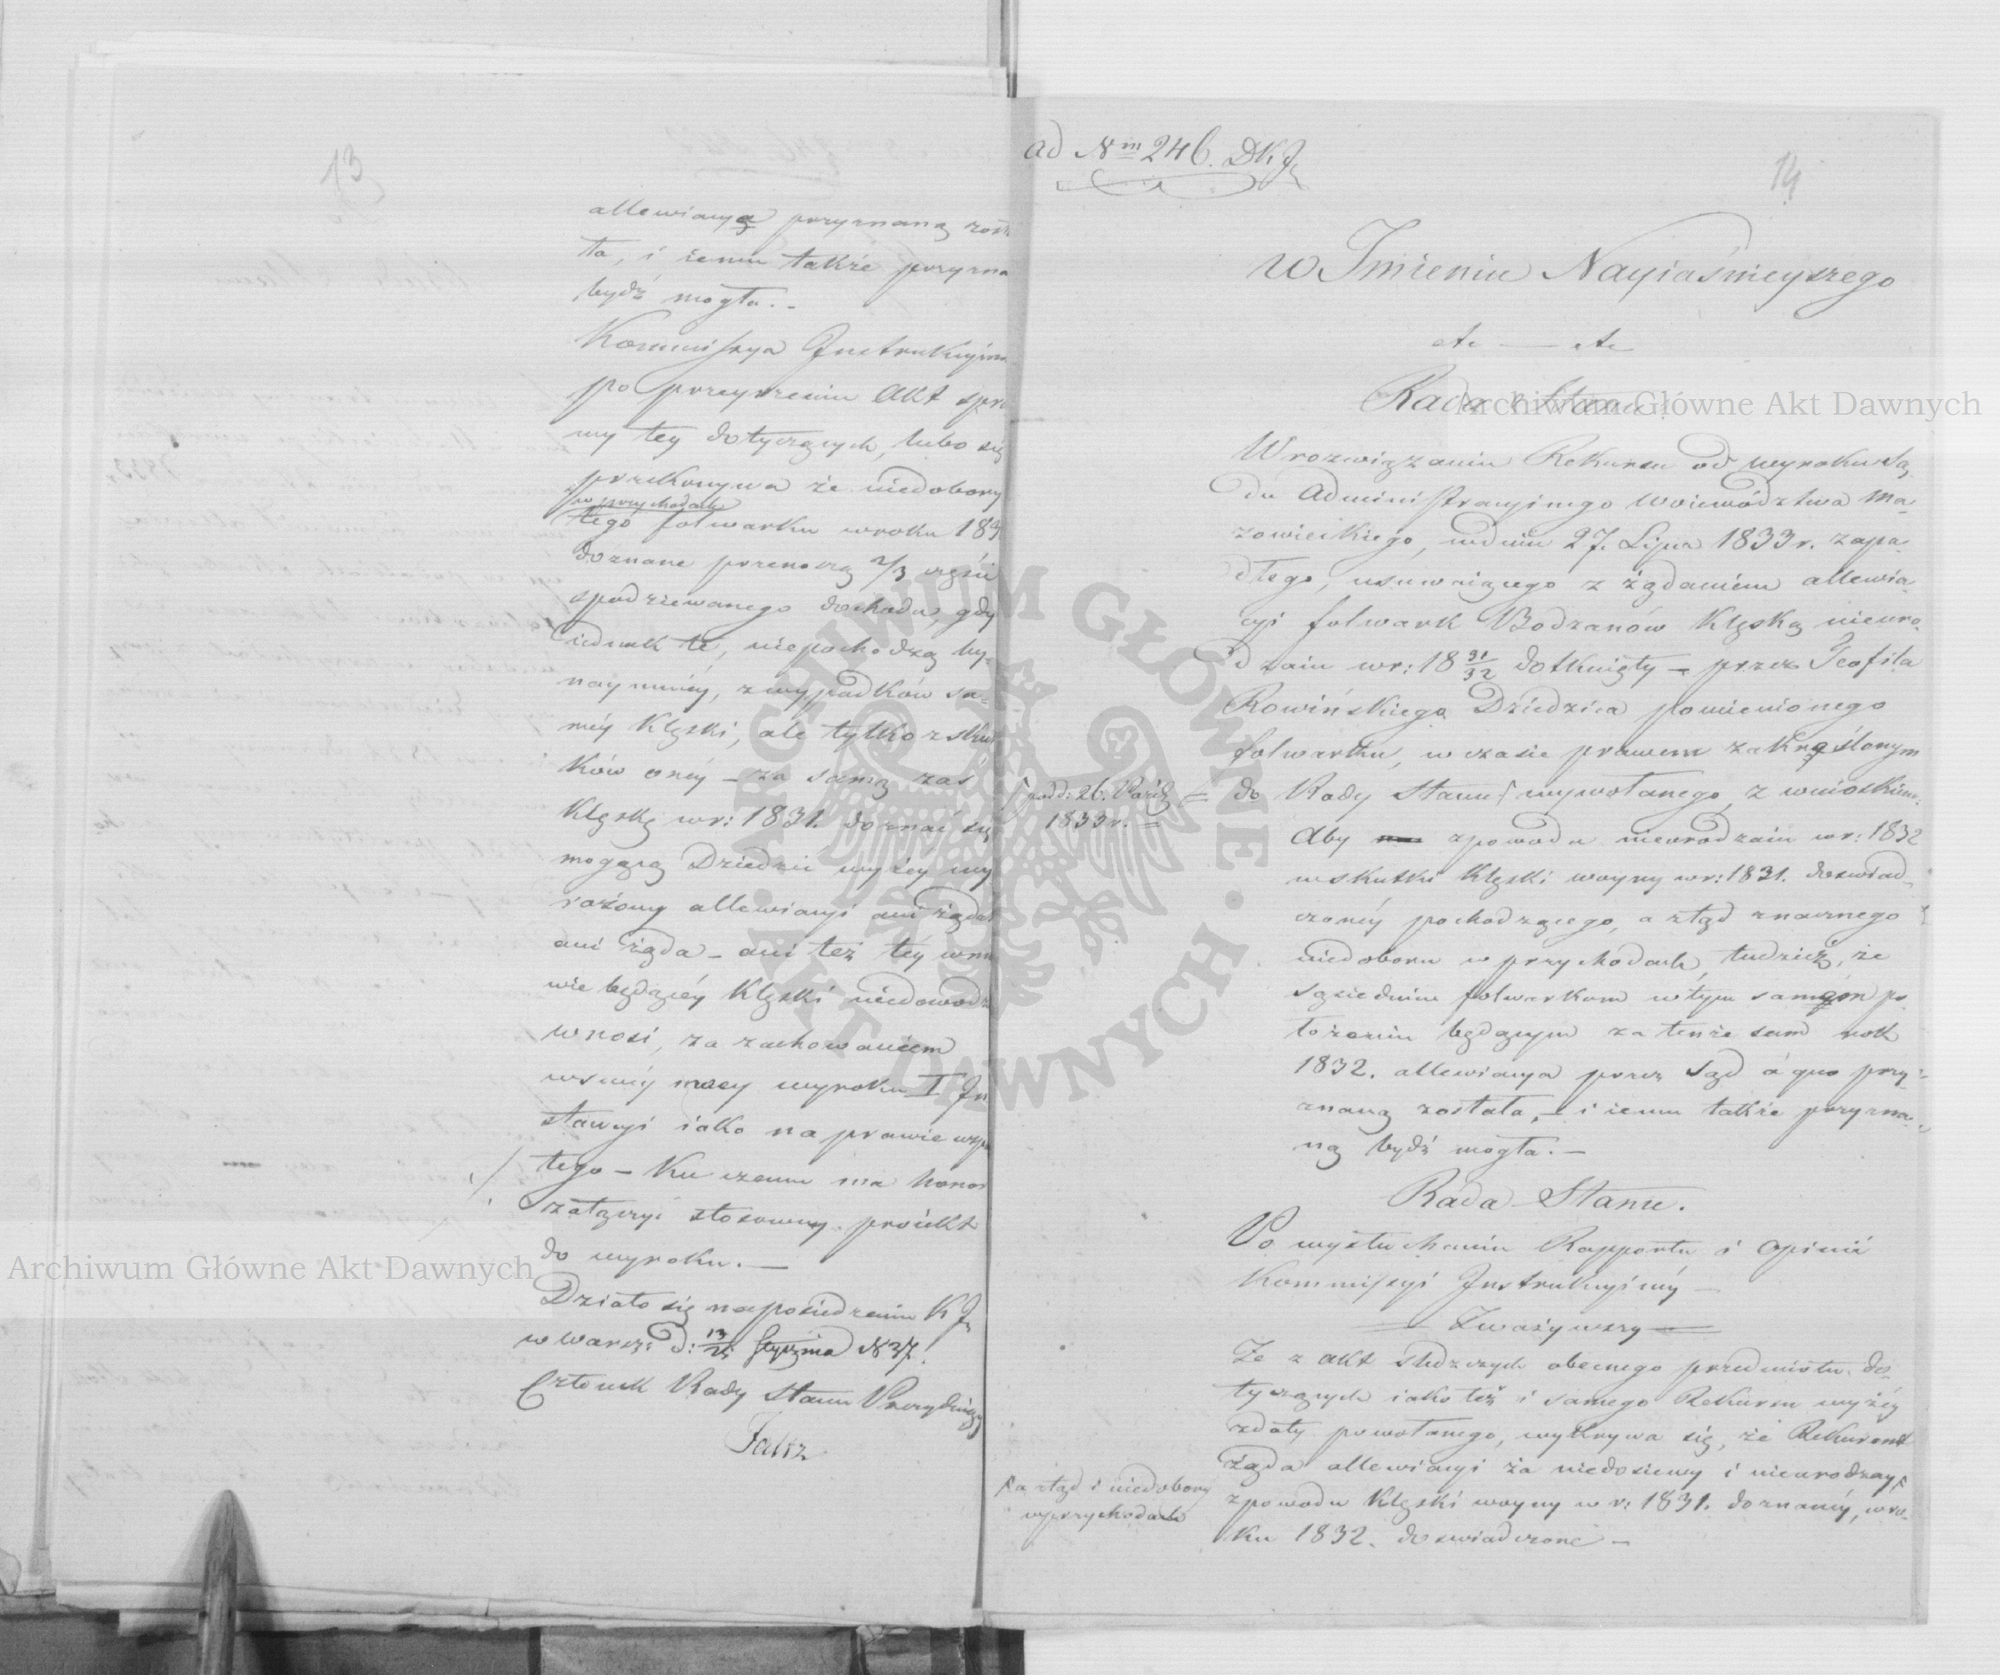 13
allewiacya przyznaną zosta
ła, i iemu także przyzna
bydź mogła. –
Kommissya Instrukcyina
po przeyrzeniu Akt spra
wy tey dotyczących, lubo się
przekonywa że niedobory
w przychodach
tego folwarku w roku 183
doznane przenoszą 2/3 części
spodziewanego dochodu, gdy
iednak te, niepochodzą by-
naymniéy, z wypadków sa-
méy Klęski, ale tylko z skut
ków onéy – za samą zaś
Klęskę w r: 1831. doznać się
mogącą Dziedzic wyżéy wy
rażony allewiacyi ani żądał
ani żąda – ani też téy
wie będącéy Klęski niedowodzi
wnosi, za zachowaniem
w swéy mocy wyroku I In
stancyi iako na prawie wspar
tego – Ku czemu ma honor
załączyć stosowny proiekt
do wyroku. –
Działo się na posiedzeniu K J
w Warsz: d: 13/25 Stycznia 1837.
Członek Rady Stanu Prezyduiący
Faltz
ad Nm 246. DKJ.
14
w Imieniu Nayiaśnieyszego
etc — etc
Rada Stanu
W rozwiązaniu Rekursu od wyroku Są
du Administracyinego Woiewództwa Ma-
zowieckiego, w dniu 27. Lipca 1833 r. zapa-
dłego, usuwaiącego z żądaniem allewia-
cyi folwark Bodzanów Klęską nieuro-
dzaiu w r: 18 31/32 dotknięty – przez Teofila
Rowińskiego Dziedzica pomienionego
folwarku, w czasie prawem zakréślonym
do Rady Stanu wywołanego, z wnioskiem
pod d: 26. Paźdz
1833 r. =
Aby z powodu nieurodzaiu w r: 1832
w skutku Klęski woyny w r: 1831. doświad-
czonéy pochodzącego, a ztąd znacznego
niedoboru w przychodach, tudzież, że
sąsiednim folwarkom w tym samém po
łożeniu będącym za tenże sam rok
1832. allewiacya przez Sąd á quo przy-
znaną została, – i iemu także przyzna-
ną bydź mogła. –
Rada Stanu.
Po wysłuchaniu Rapportu i opinii
Kommissyi Instrukcyinéy –
= Zważywszy =
Że z akt śledczych obecnego przedmiotu do-
tyczących iako też i samego Rekursu wyżéy
z daty powołanego, wykrywa się, że Rekurent
żąda allewiacyi za niedosiewy i nieurodzaye
a ztąd i niedobory
w przychodach
z powodu Klęski woyny w r: 1831. doznanéy, w ro-
ku 1832. doświadczone –
Archiwum Główne Akt Dawnych
Archiwum Główne Akt Dawnych
ARCHIWUM GŁÓWNE · AKT DAWNYCH ·